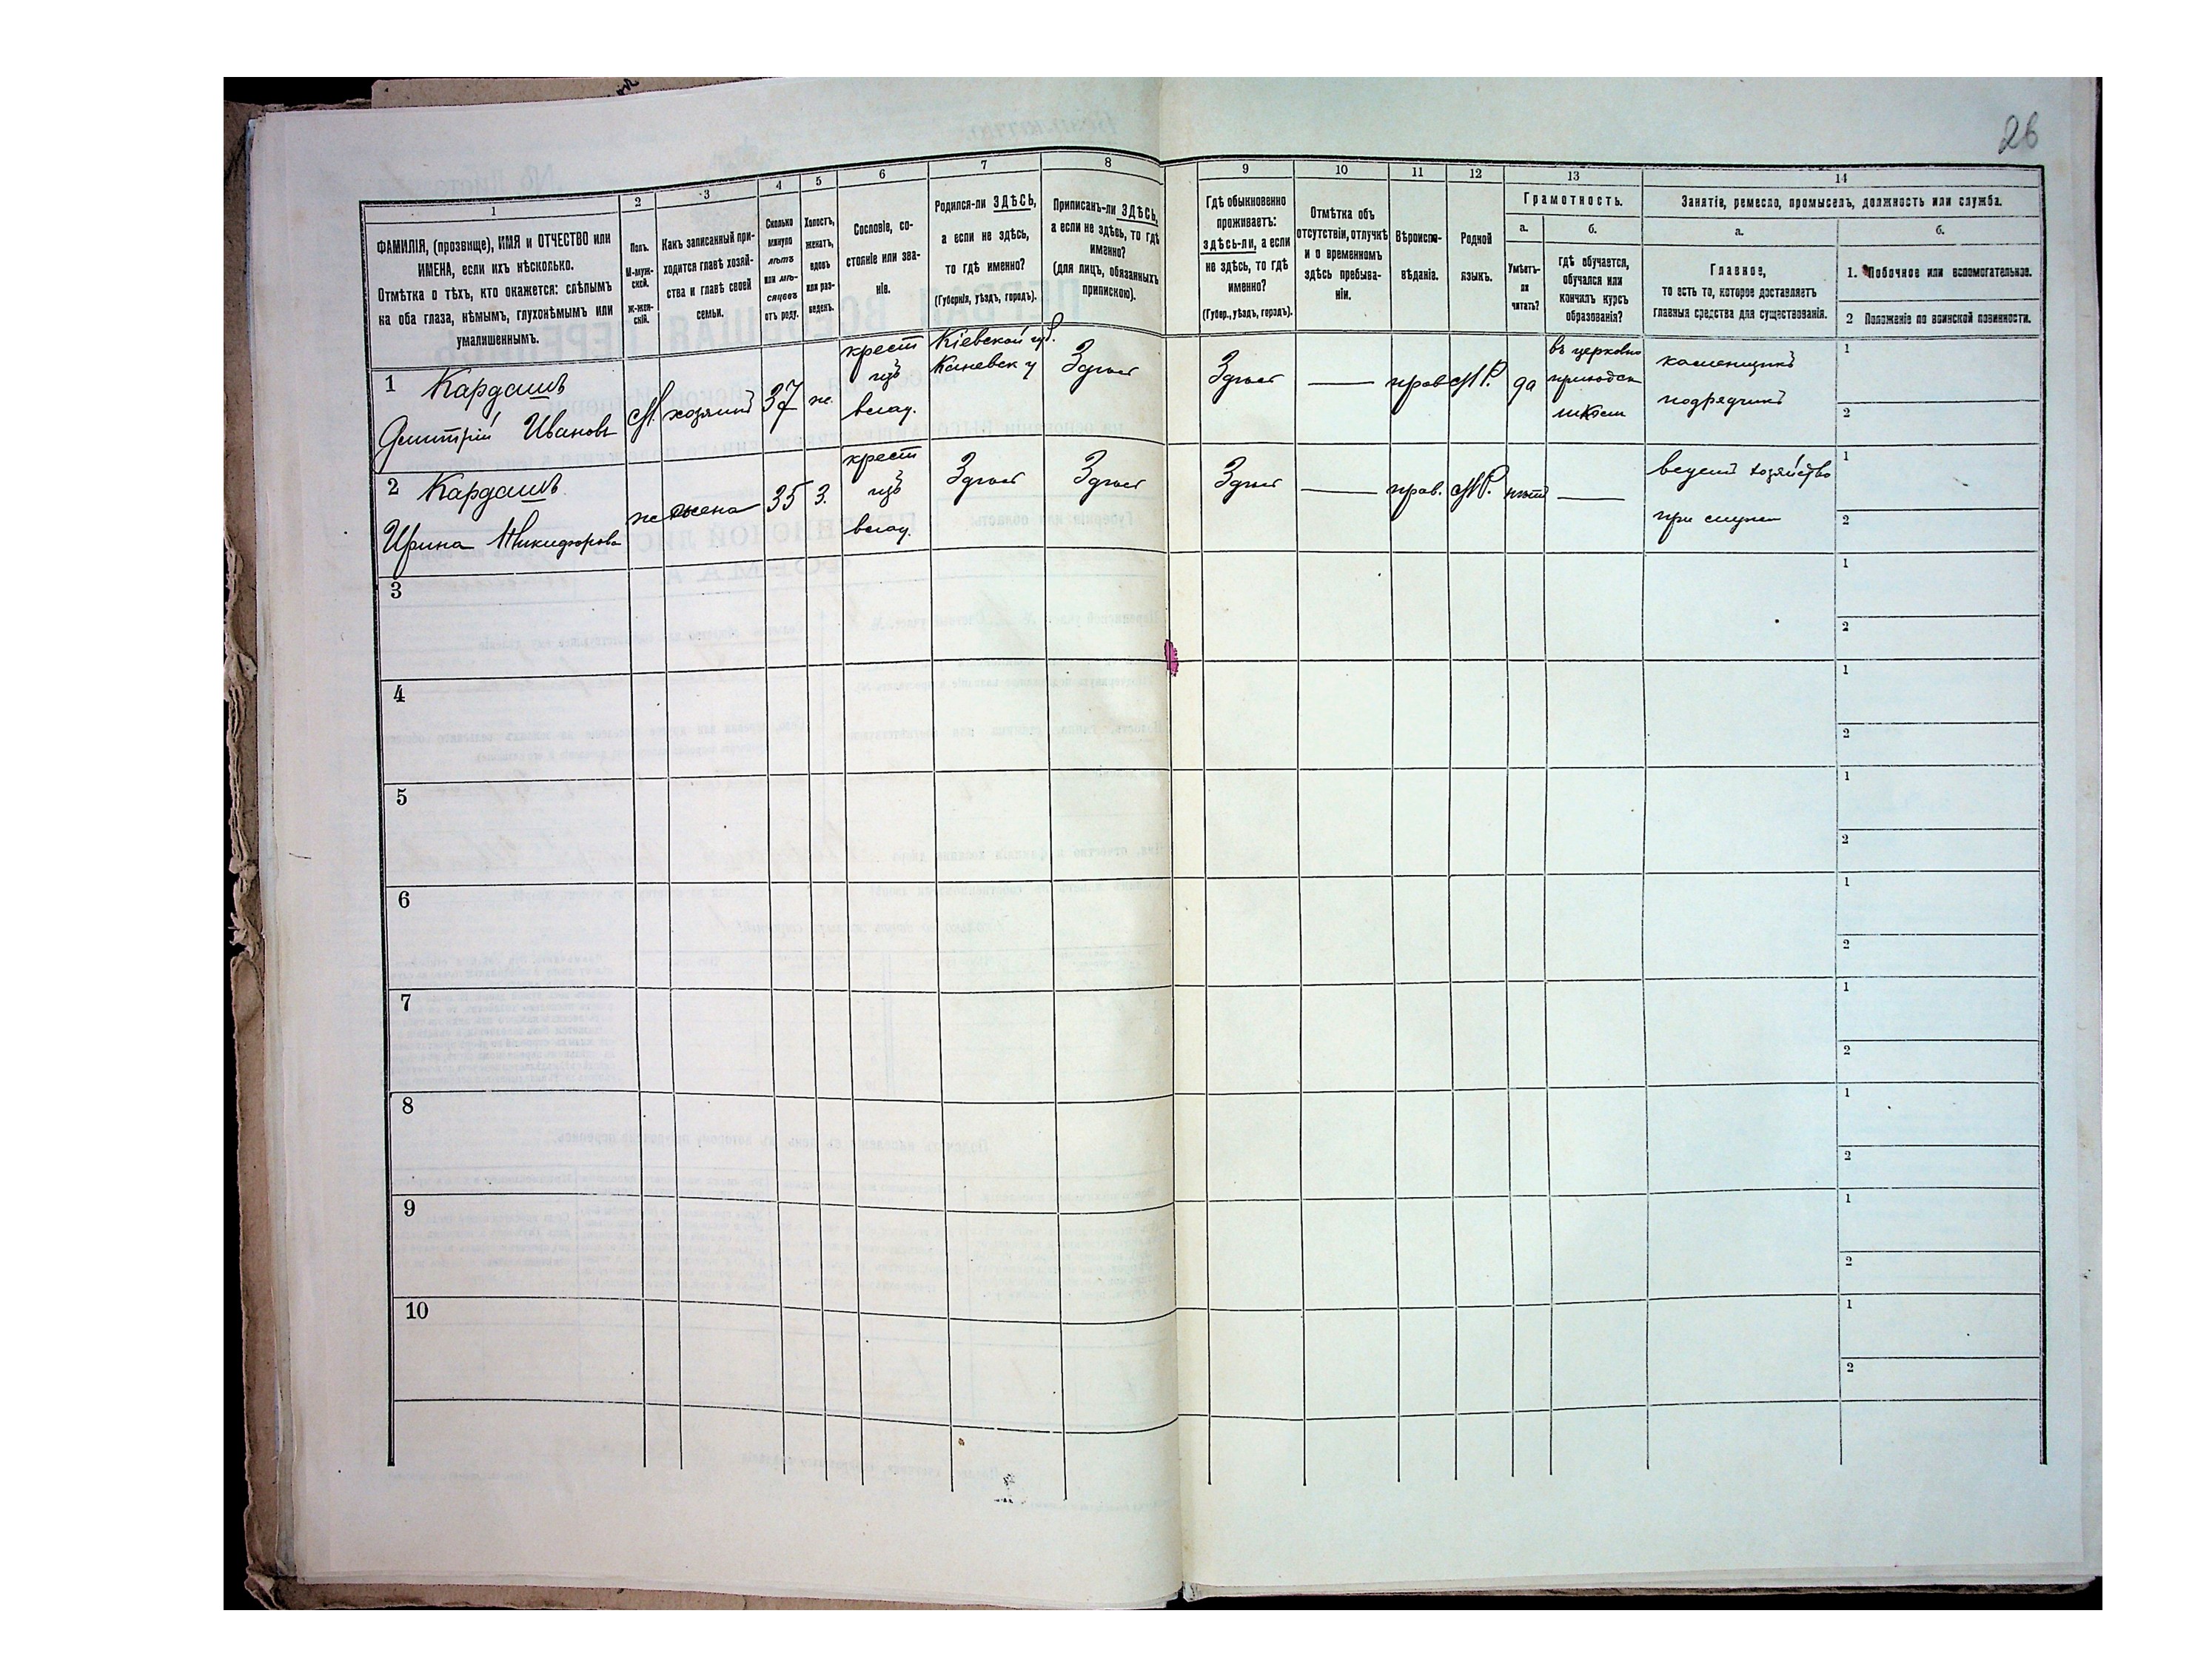 26
1
2
3
4
5
6
7
8
9
10
11
12
13
14
ФАМИЛІЯ, (прозвище), ИМЯ и ОТЧЕСТВО или
ИМЕНА, если ихъ нѣсколько.
Отмѣтка о тѣхъ, кто окажется: слѣпымъ
на оба глаза, нѣмымъ, глухонѣмымъ или
умалишеннымъ.
Полъ.
М-муж-
ской.
Ж-жен-
скій.
Какъ записанный при-
ходится главѣ хозяй-
ства и главѣ своей
семьи.
Сколько
минуло
лѣтъ
или мѣ-
сяцевъ
отъ роду.
Холостъ,
женатъ,
вдовъ
или раз-
веденъ.
Сословіе, со-
стояніе или зва-
ніе.
Родился-ли ЗДѢСЬ,
а если не здѣсь,
то гдѣ именно?
(Губернія, уѣздъ, городъ).
Приписанъ-ли ЗДѢСЬ,
а если не здѣсь, то гдѣ
именно?
(для лицъ, обязанныхъ
припискою).
Гдѣ обыкновенно
проживаетъ:
здѣсь-ли, а если
не здѣсь, то гдѣ
именно?
(Губер., уѣздъ, городъ).
Отмѣтка объ
отсутствіи, отлучкѣ
и о временномъ
здѣсь пребыва-
ніи.
Вѣроиспо-
вѣданіе.
Родной
языкъ.
Грамотность.
а.
Умѣетъ-
ли
читать?
б.
гдѣ обучается,
обучался или
кончилъ курсъ
образованія?
Занятіе, ремесло, промыселъ, должность или служба.
а.
Главное,
то есть то, которое доставляетъ
главныя средства для существованія.
б.
1. Побочное или вспомогательное.
2 Положеніе по воинской повинности.
1 Кардашъ
Дмитрій Ивановъ
М. хозяинъ 37 ж.
крест
изъ
влад.
Кіевской губ.
Каневск у
Здѣсь
Здѣсь
—
прав
М.Р.
да
въ церковно
приходск
школѣ
каменщикъ
подрядчикъ
1
2
2 Кардашъ
Ирина Никифорова
ж жена 35 З.
крест
изъ
влад.
Здѣсь
Здѣсь
Здѣсь
—
прав.
М.Р.
нѣтъ
—
ведетъ хозяйство
при
1
2
3
1
2
4
1
2
5
1
2
6
1
2
7
1
2
8
1
2
9
1
2
10
1
2